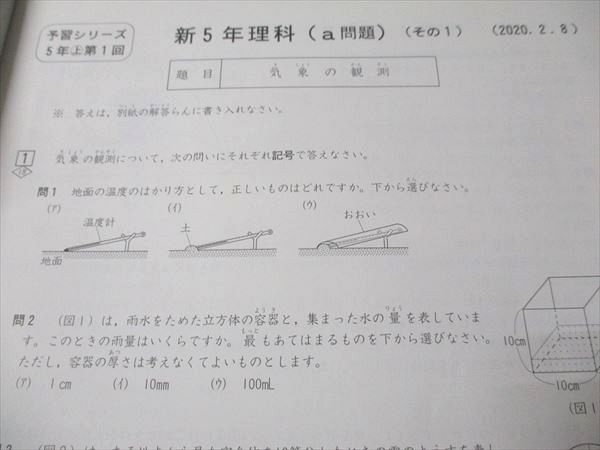 予習シリーズ
5年㊤第1回
新5年理科(a問題)(その1) (2020.2.8)
題目 気象の観測
※ 答えは,別紙の解答らんに書き入れなさい。
1 気象の観測について,次の問いにそれぞれ記号で答えなさい。
問1 地面の温度のはかり方として,正しいものはどれですか。下から選びなさい。
(ア) (イ) (ウ)
温度計 土 おおい
地面
問2 (図1)は,雨水をためた立方体の容器と,集まった水の量を表していま
す。このときの雨量はいくらですか。最もあてはまるものを下から選びなさい。
ただし,容器の厚さは考えなくてよいものとします。
(ア) 1cm (イ) 10mm (ウ) 100mL
10cm
10cm
(図1